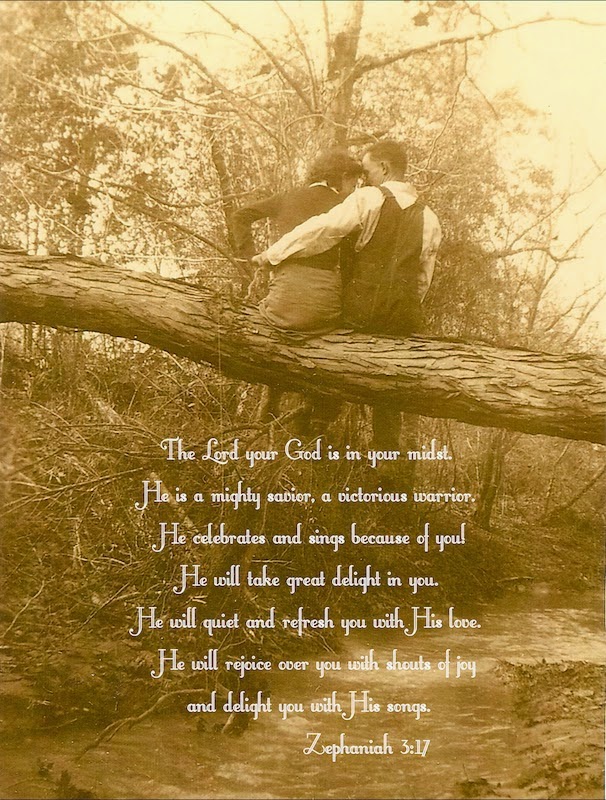 The Lord your God is in your midst.
He is a mighty savior, a victorious warrior.
He celebrates and sings because of you!
He will take great delight in you.
He will quiet and refresh you with His love.
He will rejoice over you with shouts of joy
and delight you with His songs.
Zephaniah 3:17